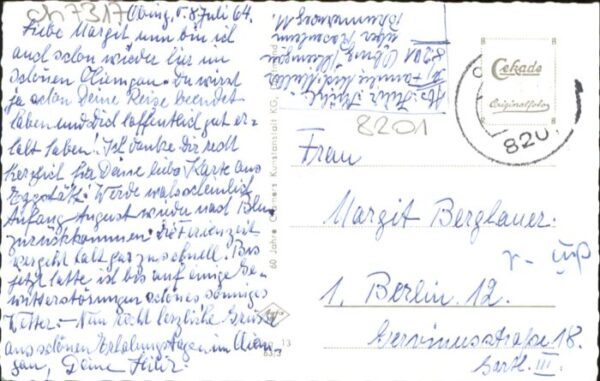 ch7317
Obing, 8. Juli 64.
Liebe Margit nun bin ich
auch schon wieder hir im
schönen Chiemgau. Du wirst
ja schon Deine Reise beendet
haben und Dich hoffentlich gut er-
holt haben! Ich danke dir recht
herzlich für Deine liebe Karte aus
Werde wahrscheinlich
Anfang August wieder nach Bln
zurückkommen. Die Ferienzeit
vergeht halt gar zu schnell. Bis
jetzt hatte ich bis auf einige Ge-
witterstörungen schönes sonniges
Wetter.- Nun recht herzliche Grüsse
aus schönen Erholungstagen im Chiem-
gau, Deine
Familie
8201 Obing
über Rosenheim
8201
60 Jahre Cramers Kunstanstalt KG, Dortmund
Cekade
Originalfoto
820
Frau
Margit Berglauer.
1. Berlin. 12.
Gervinusstraße 18.
Gartl. III.